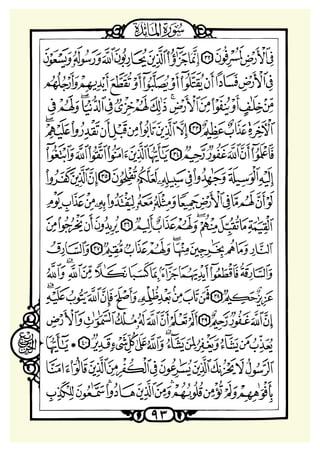 سُورَةُ المَائِدَةِ
فِي الْأَرْضِ لَمُسْرِفُونَ إِنَّمَا جَزَٰٓؤُا الَّذِينَ يُحَارِبُونَ اللَّهَ وَرَسُولَهُ وَيَسْعَوْنَ
فِي الْأَرْضِ فَسَادًا أَنْ يُقَتَّلُوا أَوْ يُصَلَّبُوا أَوْ تُقَطَّعَ أَيْدِيهِمْ وَأَرْجُلُهُمْ
مِنْ خِلَٰفٍ أَوْ يُنْفَوْا مِنَ الْأَرْضِ ذَٰلِكَ لَهُمْ خِزْيٌ فِي الدُّنْيَا وَلَهُمْ فِي
الْآخِرَةِ عَذَابٌ عَظِيمٌ إِلَّا الَّذِينَ تَابُوا مِنْ قَبْلِ أَنْ تَقْدِرُوا عَلَيْهِمْ
فَاعْلَمُوا أَنَّ اللَّهَ غَفُورٌ رَحِيمٌ يَٰٓأَيُّهَا الَّذِينَ ءَامَنُوا اتَّقُوا اللَّهَ وَابْتَغُوا
إِلَيْهِ الْوَسِيلَةَ وَجَٰهِدُوا فِي سَبِيلِهِ لَعَلَّكُمْ تُفْلِحُونَ إِنَّ الَّذِينَ كَفَرُوا
لَوْ أَنَّ لَهُمْ مَا فِي الْأَرْضِ جَمِيعًا وَمِثْلَهُ مَعَهُ لِيَفْتَدُوا بِهِ مِنْ عَذَابِ يَوْمِ
الْقِيَٰمَةِ مَا تُقُبِّلَ مِنْهُمْ وَلَهُمْ عَذَابٌ أَلِيمٌ يُرِيدُونَ أَنْ يَخْرُجُوا مِنَ
النَّارِ وَمَا هُمْ بِخَٰرِجِينَ مِنْهَا وَلَهُمْ عَذَابٌ مُقِيمٌ وَالسَّارِقُ
وَالسَّارِقَةُ فَاقْطَعُوا أَيْدِيَهُمَا جَزَاءً بِمَا كَسَبَا نَكَٰلًا مِنَ اللَّهِ وَاللَّهُ
عَزِيزٌ حَكِيمٌ فَمَنْ تَابَ مِنْ بَعْدِ ظُلْمِهِ وَأَصْلَحَ فَإِنَّ اللَّهَ يَتُوبُ عَلَيْهِ
إِنَّ اللَّهَ غَفُورٌ رَحِيمٌ أَلَمْ تَعْلَمْ أَنَّ اللَّهَ لَهُ مُلْكُ السَّمَٰوَٰتِ وَالْأَرْضِ
يُعَذِّبُ مَنْ يَشَاءُ وَيَغْفِرُ لِمَنْ يَشَاءُ وَاللَّهُ عَلَىٰ كُلِّ شَيْءٍ قَدِيرٌ يَٰٓأَيُّهَا
الرَّسُولُ لَا يَحْزُنْكَ الَّذِينَ يُسَٰرِعُونَ فِي الْكُفْرِ مِنَ الَّذِينَ قَالُوا ءَامَنَّا
بِأَفْوَٰهِهِمْ وَلَمْ تُؤْمِنْ قُلُوبُهُمْ وَمِنَ الَّذِينَ هَادُوا سَمَّٰعُونَ لِلْكَذِبِ
٩٣